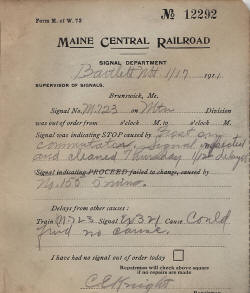 Form M. of W. 73
No 12292
MAINE CENTRAL RAILROAD
SIGNAL DEPARTMENT
Bartlett 1/17 191
SUPERVISOR OF SIGNALS.
Brunswick, Me.
Signal No. M723 on Mtn Division
was out of order from o'clock M. to o'clock M.
Signal was indicating STOP caused by Frost on
commutator. Signal inspected
and cleaned Thursday
Signal indicating PROCEED failed to change, caused by
No. 155 5 mins.
Delays from other causes:
Train Signal Cause Could
find no cause.
I have had no signal out of order today
Repairmen will check above square
if no repairs are made
C E Knight